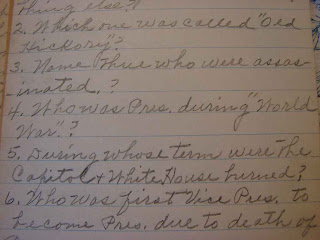 thing else?
2. Which one was called "Old
Hickory"?
3. Name three who were assas-
-inated.?
4. Who was Pres. during "World
War"?
5. During whose term were the
Capitol & White House burned?
6. Who was first Vice Pres. to
become Pres. due to death of